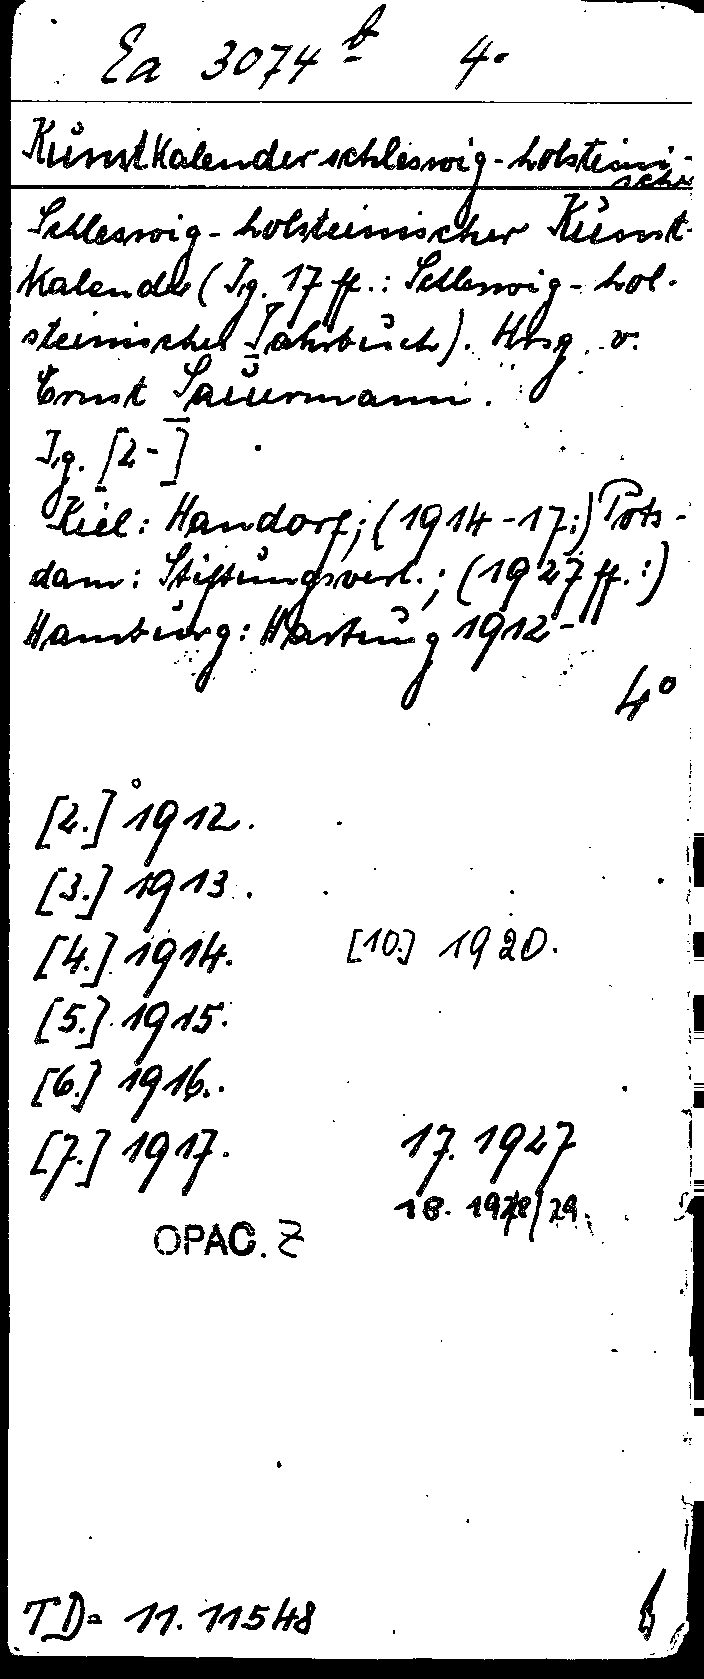 Ea 3074 b 4°
Kunstkalender schleswig-holsteini-
scher
Schleswig-holsteinischer Kunst-
kalender (Jg. 17 ff.: Schleswig-hol-
steinisches Jahrbuch). Hrsg. v.
Ernst Sauermann.
Jg. [2-]
Kiel: Handorf; (1914-17:) Pots-
dam: Stiftungsverl.; (1927 ff.:)
Hamburg: Hartung 1912-
4°
[2.] 1912.
[3.] 1913.
[4.] 1914. [10.] 1920.
[5.] 1915.
[6.] 1916.
[7.] 1917. 17. 1927
18. 1928/29.
OPAC. Z
TD= 11. 11548